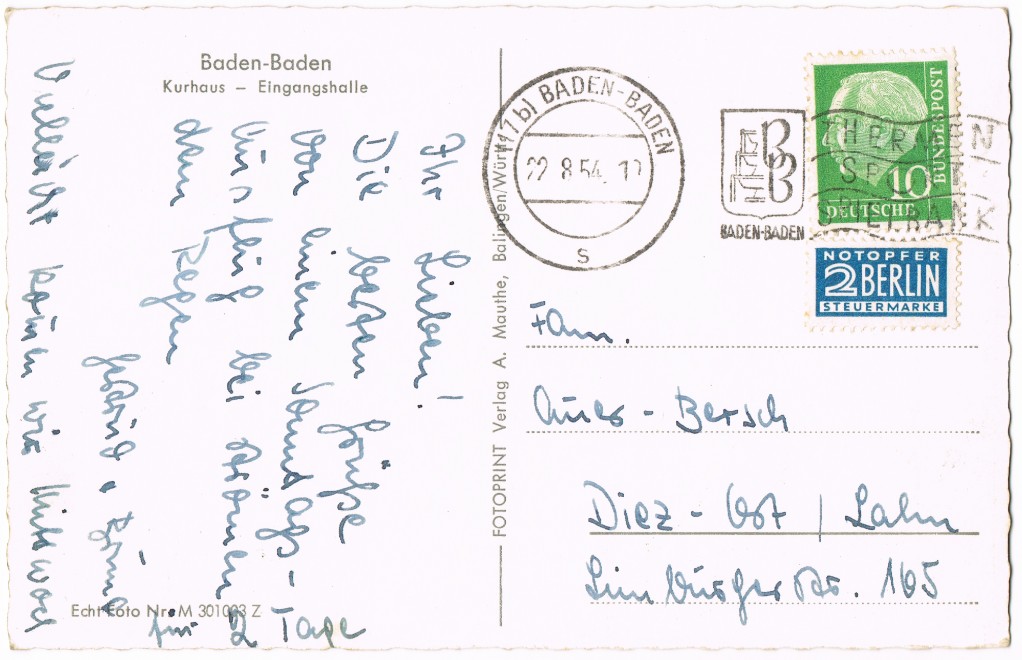 Baden-Baden
Kurhaus – Eingangshalle
Ihr Lieben!
Die besten Grüße
von einem Sonntags-
bei strömen
dem Regen
Vielleicht kommen wir Mittwoch
für 2 Tage
Echt Foto Nr. M 301003 Z
FOTOPRINT Verlag A. Mauthe, Balingen/Württ.
(17b) BADEN-BADEN
22.8.54
s
BB
BADEN-BADEN
SPIELBANK
DEUTSCHE
BUNDESPOST
10
NOTOPFER
2 BERLIN
STEUERMARKE
Fam.
Auer - Bersch
Diez - Ost / Lahn
Limburger Str. 165